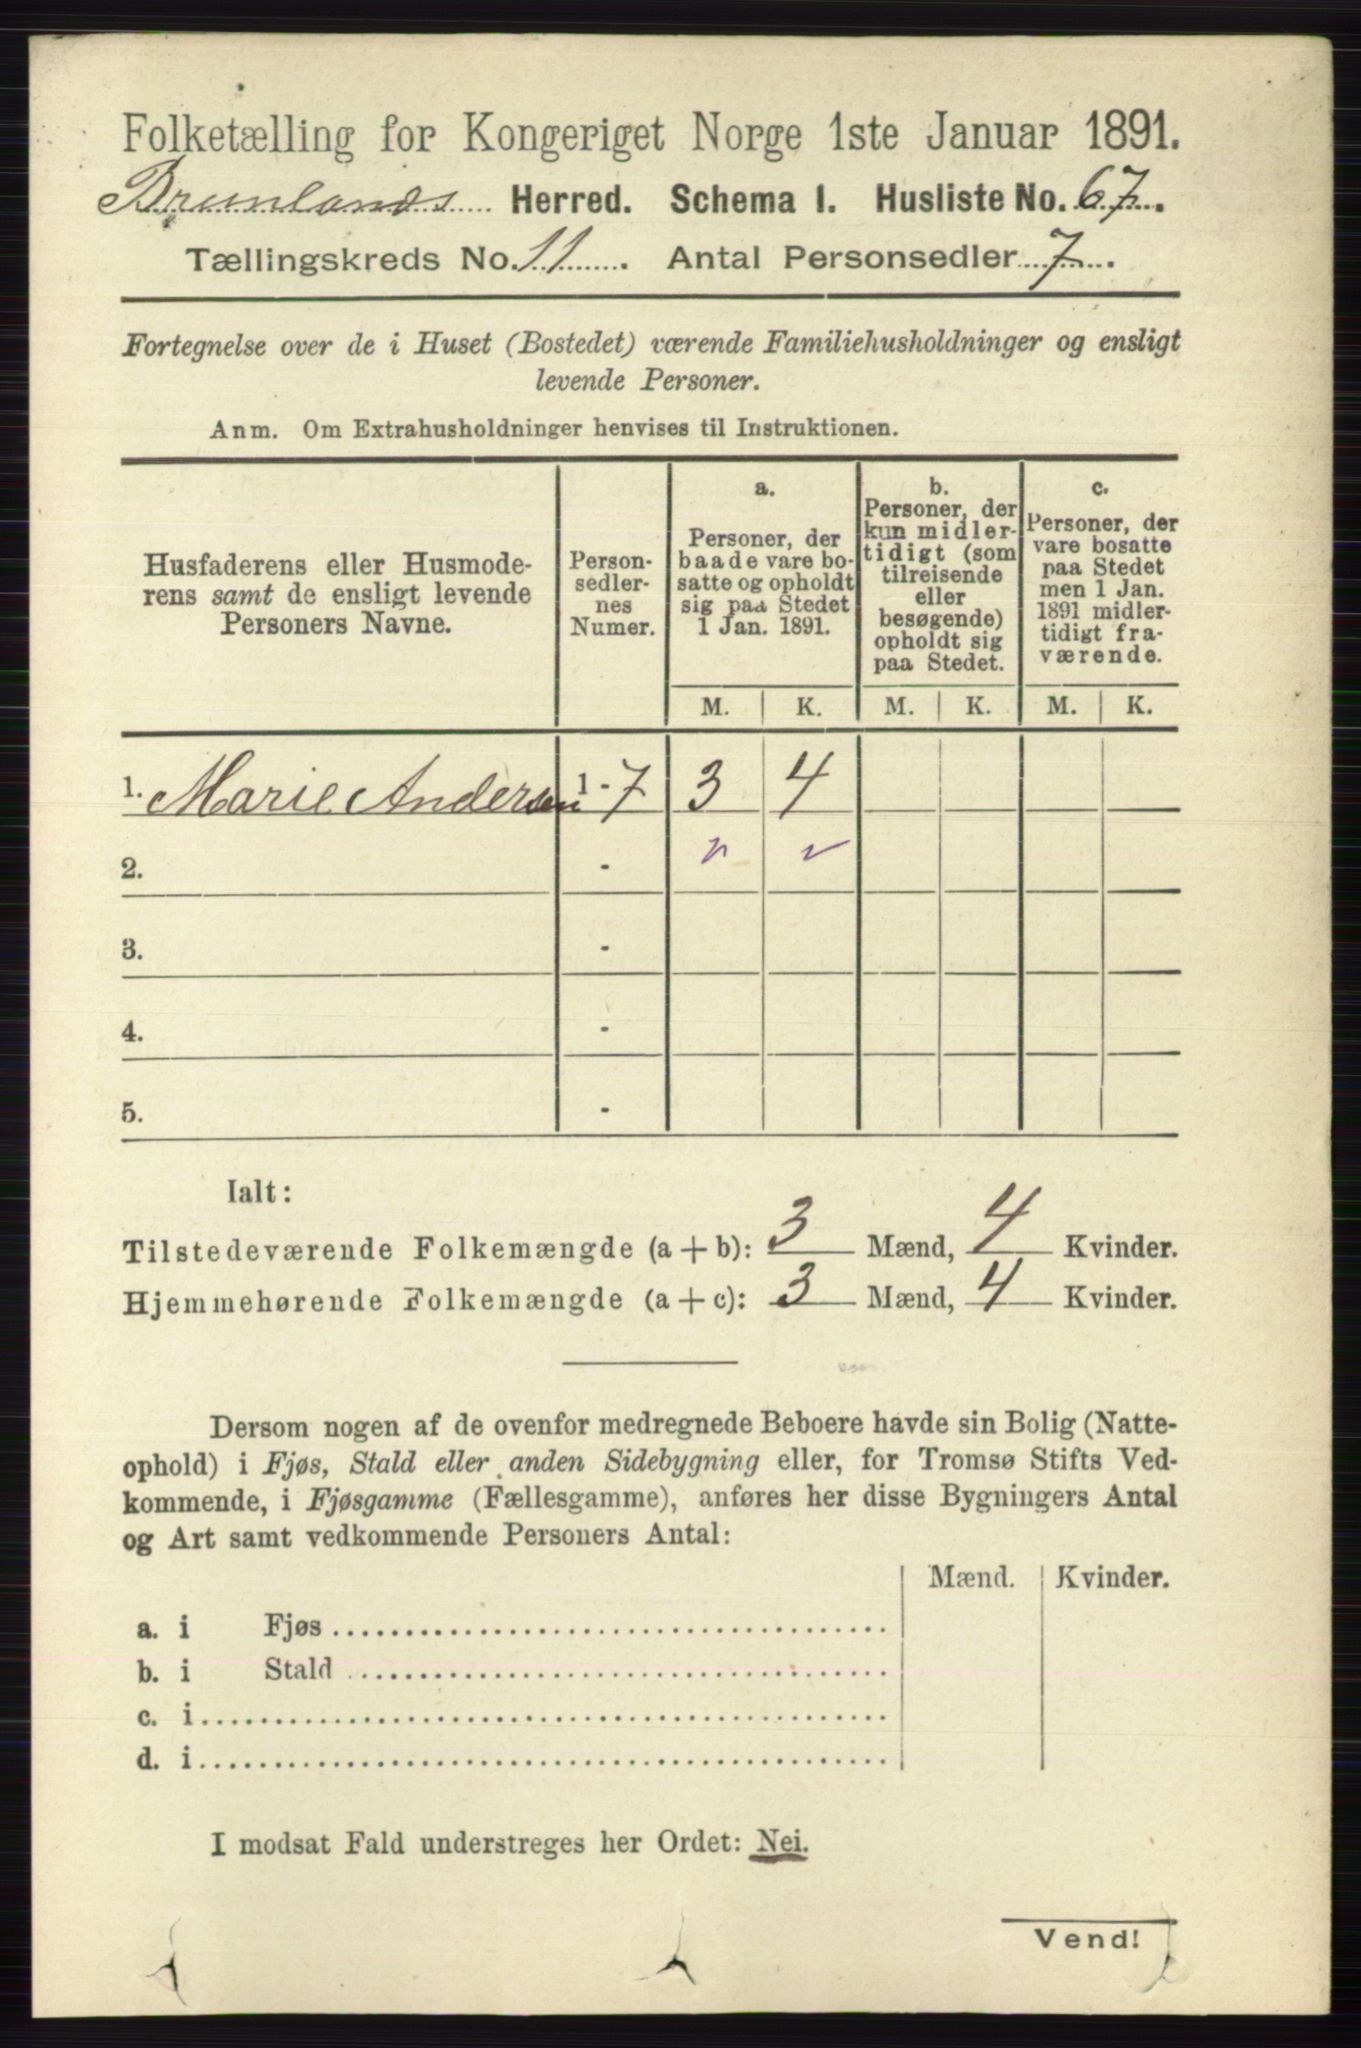 Folketælling for Kongeriget Norge 1ste Januar 1891.
Brunlanæs Herred. Schema 1. Husliste No. 67.
Tællingskreds No. 11. Antal Personsedler 7.
Fortegnelse over de i Huset (Bostedet) værende Familiehusholdninger og ensligt
levende Personer.
Anm. Om Extrahusholdninger henvises til Instruktionen.
Husfaderens eller Husmode-
rens samt de ensligt levende
Personers Navne.
Person-
sedler-
nes
Numer.
a.
Personer, der
baade vare bo-
satte og opholdt
sig paa Stedet
1 Jan. 1891.
b.
Personer, der
kun midler-
tidigt (som
tilreisende
eller
besøgende)
opholdt sig
paa Stedet.
c.
Personer, der
vare bosatte
paa Stedet
men 1 Jan.
1891 midler-
tidigt fra-
værende.
M. K. M. K. M. K.
1. Marie Andersen 1 - 7 3 4
2. -
3. -
4. -
5. -
Ialt:
Tilstedeværende Folkemængde (a + b): 3 Mænd, 4 Kvinder.
Hjemmehørende Folkemængde (a + c): 3 Mænd, 4 Kvinder.
Dersom nogen af de ovenfor medregnede Beboere havde sin Bolig (Natte-
ophold) i Fjøs, Stald eller anden Sidebygning eller, for Tromsø Stifts Ved-
kommende, i Fjøsgamme (Fællesgamme), anføres her disse Bygningers Antal
og Art samt vedkommende Personers Antal:
Mænd. Kvinder.
a. i Fjøs
b. i Stald
c. i
d. i
I modsat Fald understreges her Ordet: Nei.
Vend!